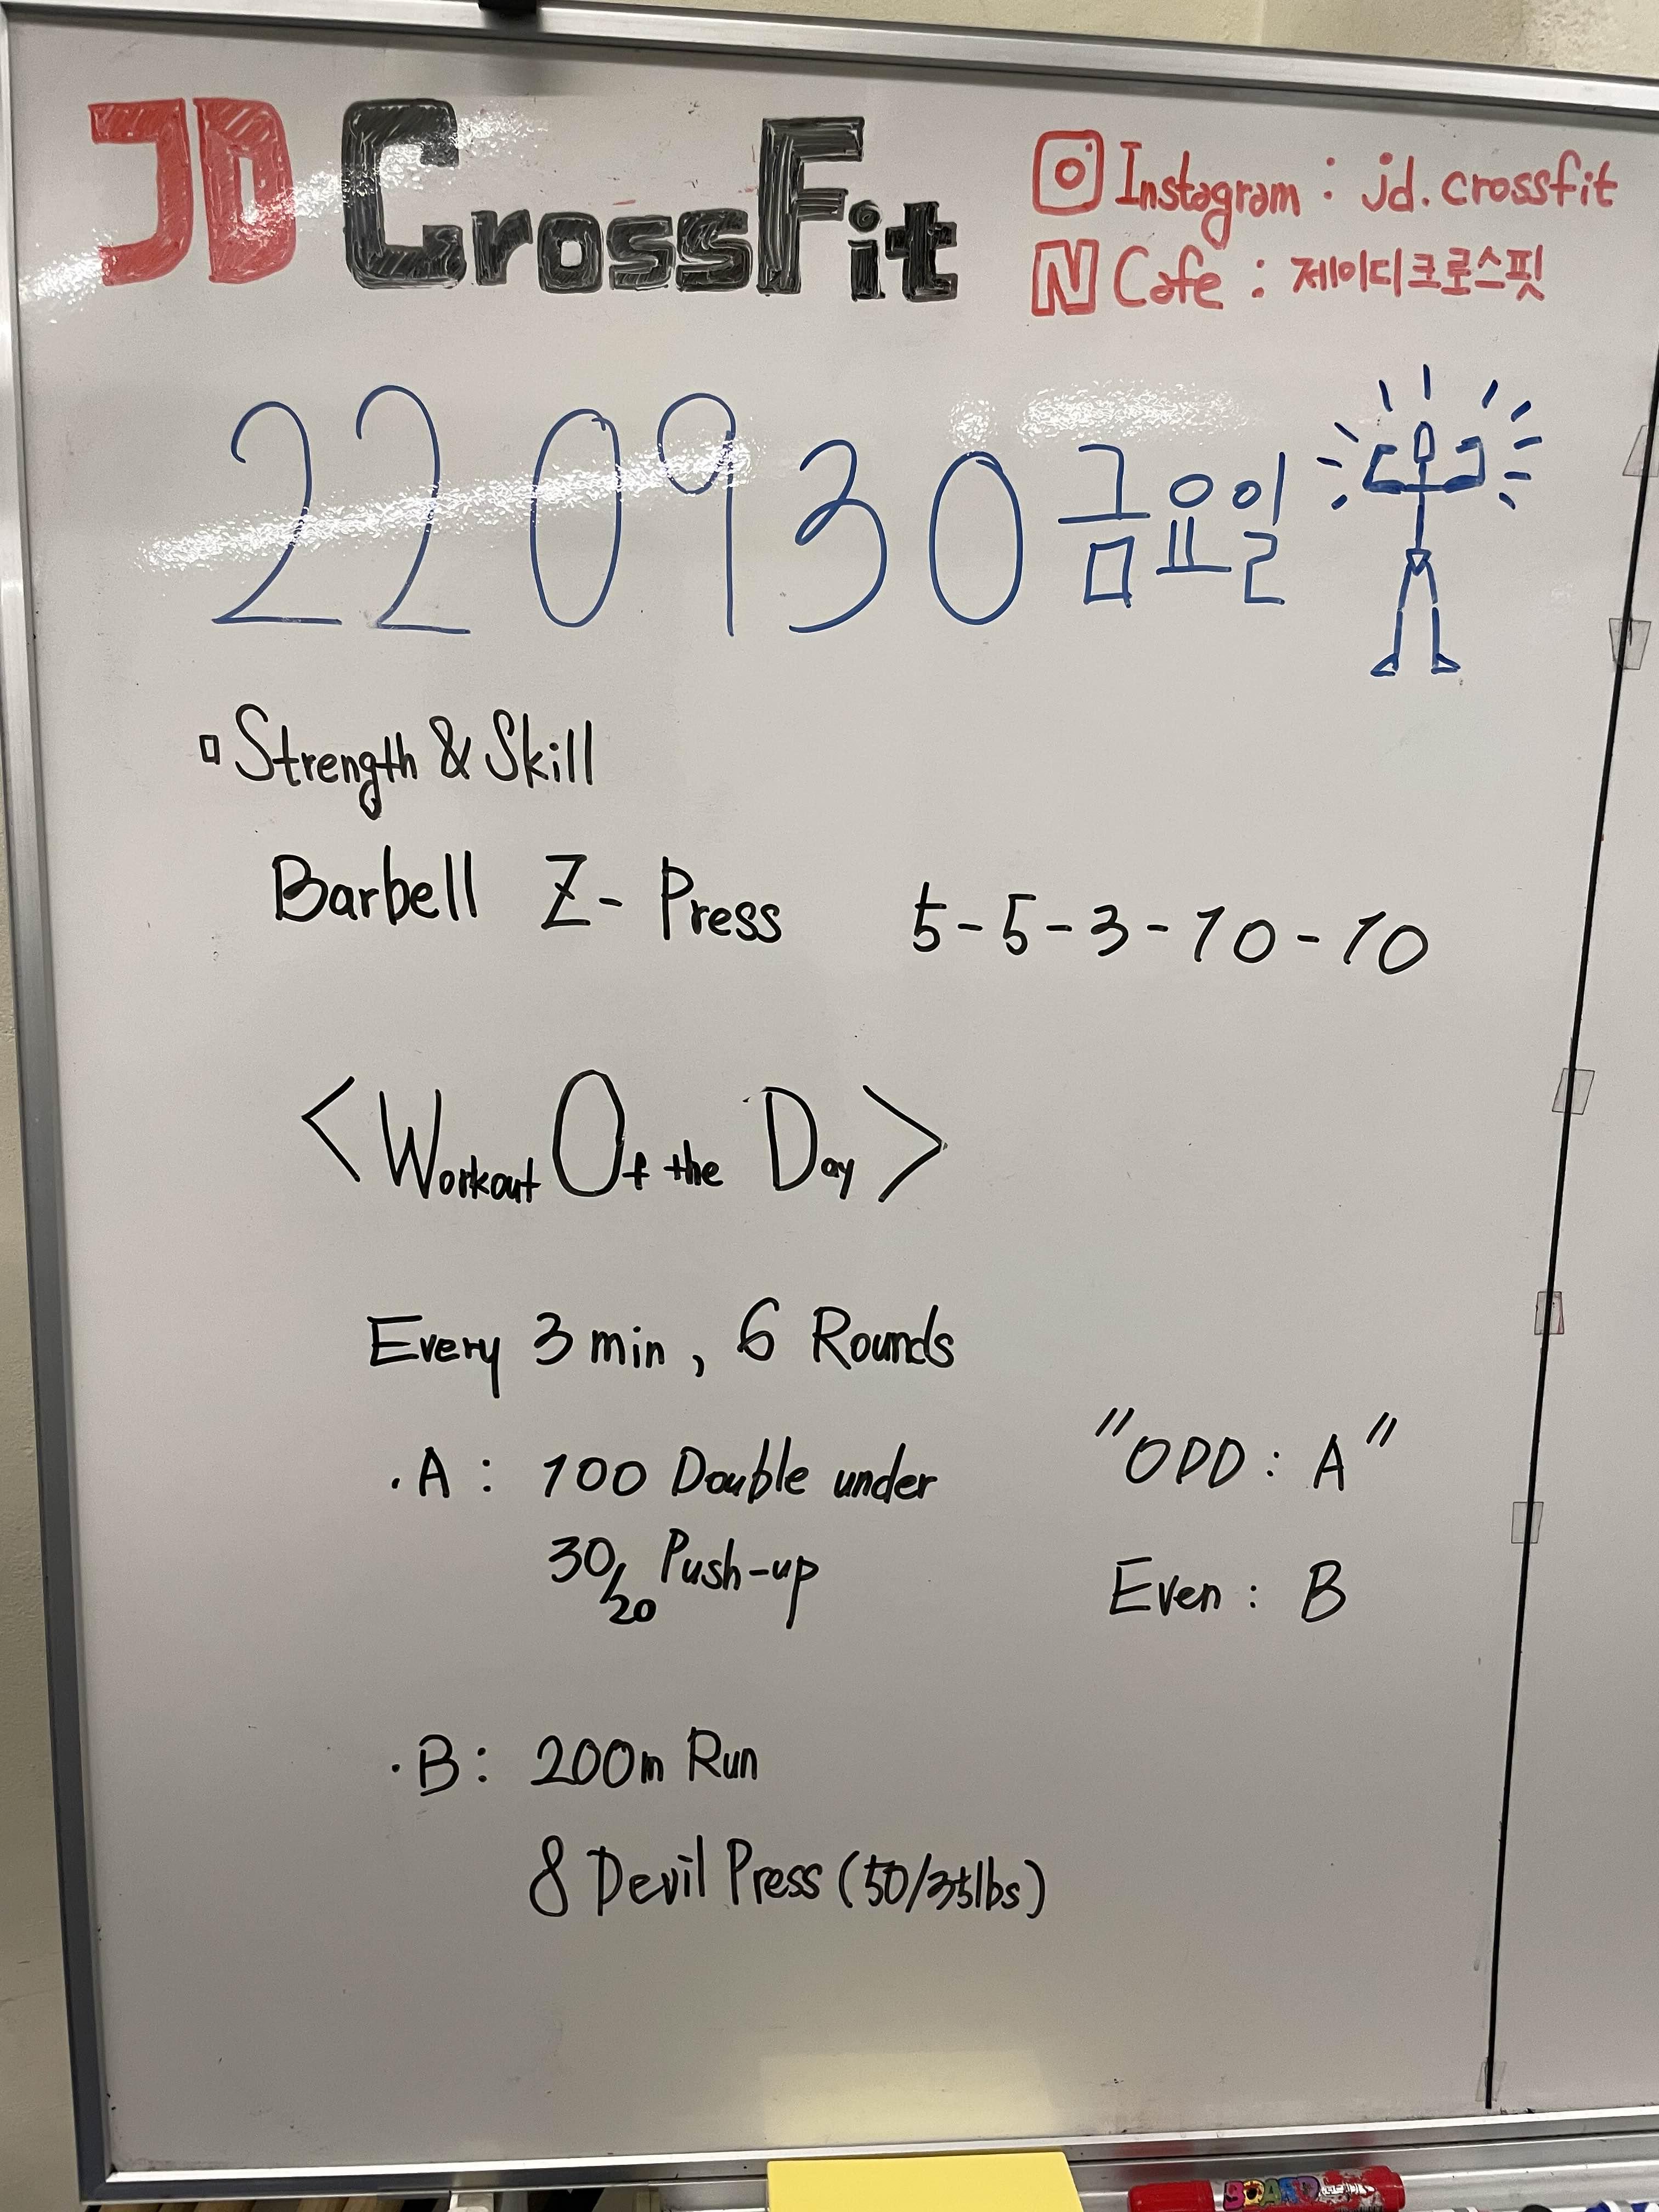 JD CrossFit
Instagram : jd.crossfit
N Cafe : 제이디크로스핏
220930 금요일
Strength & Skill
Barbell Z- Press 5-5-3-10-10
<Workout Of the Day>
Every 3 min, 6 Rounds
· A : 100 Double under
30/20 Push-up
"ODD : A"
Even : B
· B : 200m Run
8 Devil Press (50/35lbs)
BOARD